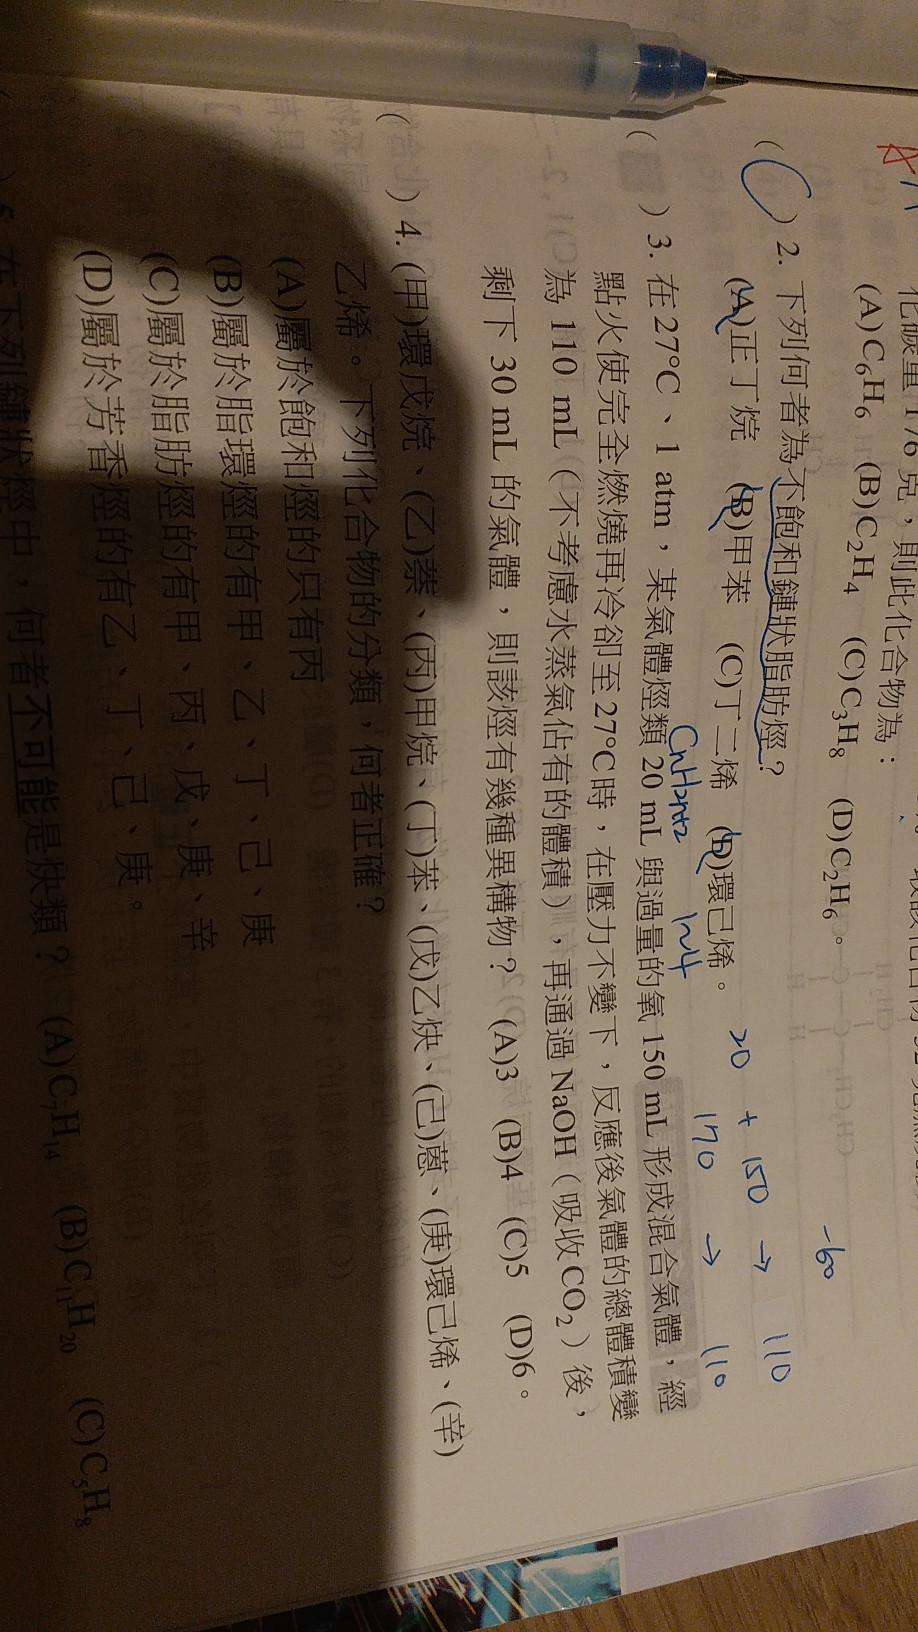 化碳量 176 克，則此化合物為：
(A)C₆H₆ (B)C₂H₄ (C)C₃H₈ (D)C₂H₆。
(C) 2. 下列何者為不飽和鏈狀脂肪烴？
(A)正丁烷 (B)甲苯 (C)丁二烯 (D)環己烯。
-60
20 + 150 → 110
170 → 110
CnH2n+2 1~4
( ) 3. 在 27°C、1 atm，某氣體烴類 20 mL 與過量的氧 150 mL 形成混合氣體，經
點火使完全燃燒再冷卻至 27°C 時，在壓力不變下，反應後氣體的總體積變
為 110 mL（不考慮水蒸氣佔有的體積），再通過 NaOH（吸收 CO₂）後，
剩下 30 mL 的氣體，則該烴有幾種異構物？ (A)3 (B)4 (C)5 (D)6。
( ) 4. (甲)環戊烷、(乙)萘、(丙)甲烷、(丁)苯、(戊)乙炔、(己)蒽、(庚)環己烯、(辛)
乙烯。下列化合物的分類，何者正確？
(A)屬於飽和烴的只有丙
(B)屬於脂環烴的有甲、乙、丁、己、庚
(C)屬於脂肪烴的有甲、丙、戊、庚、辛
(D)屬於芳香烴的有乙、丁、己、庚。
) 5. 在下列鏈狀烴中，何者不可能是炔類？ (A)C₇H₁₄ (B)C₁₁H₂₀ (C)C₅H₈